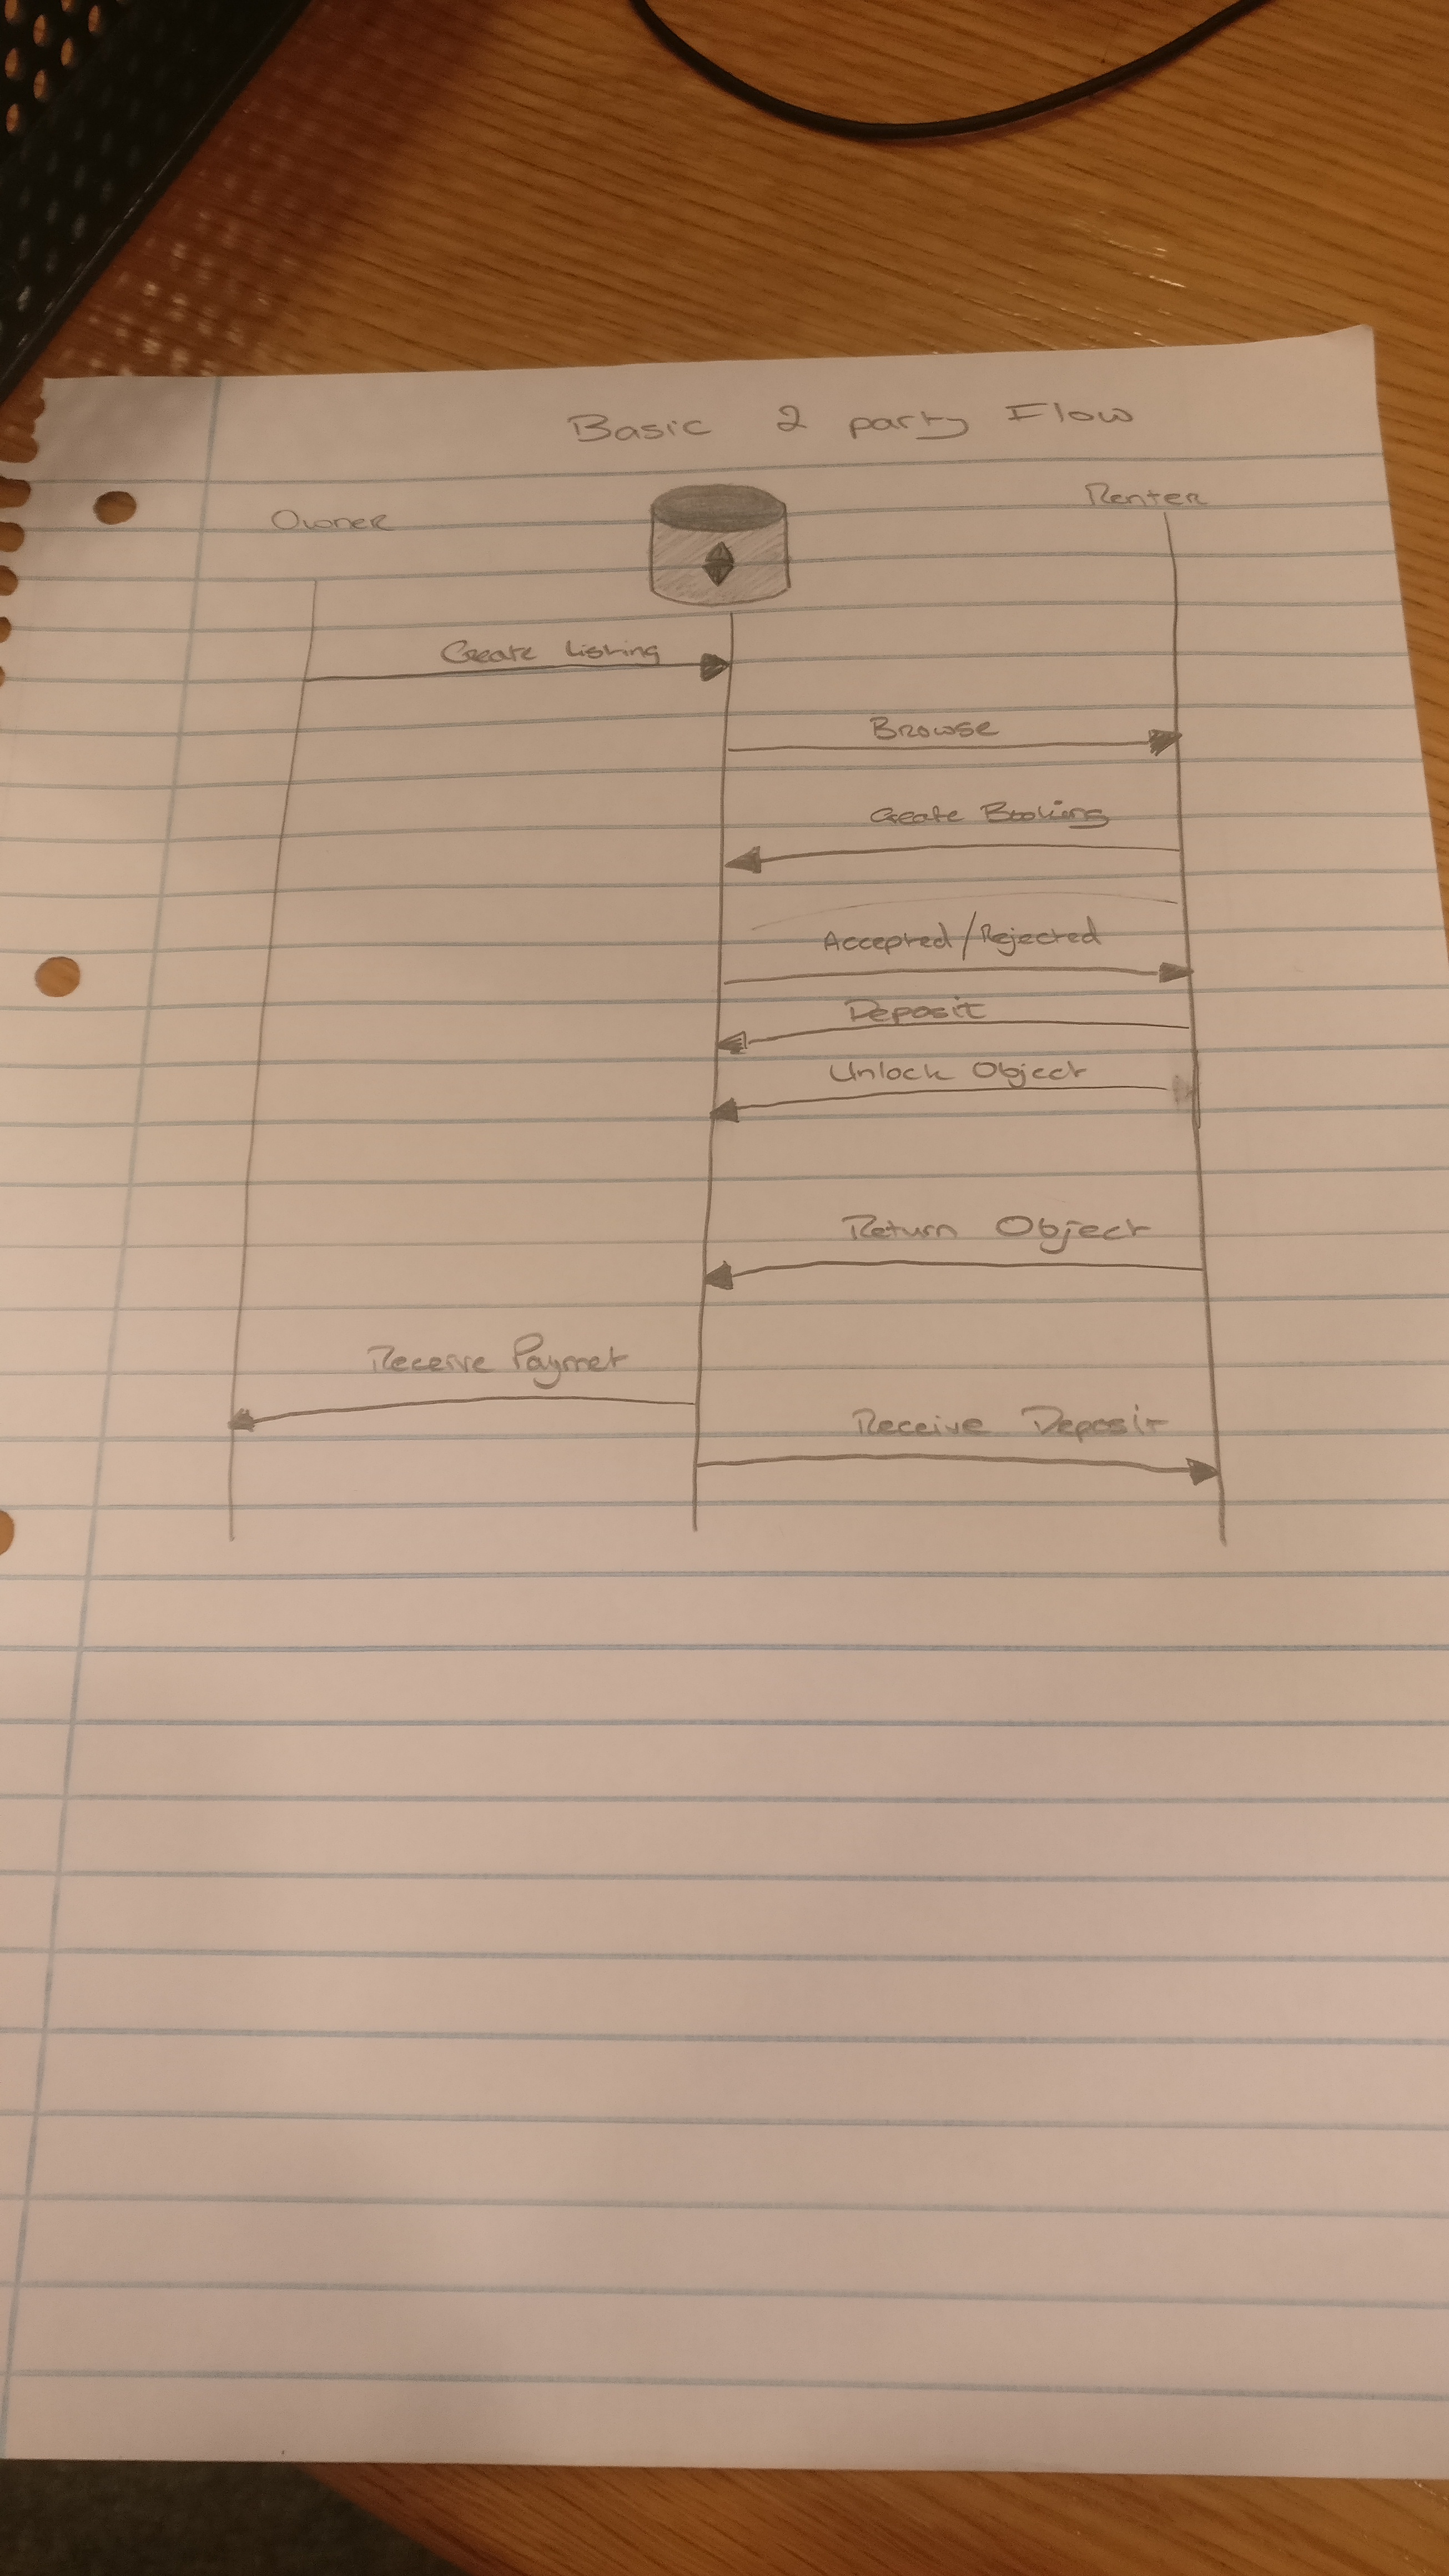 Basic 2 party Flow
Owner
Renter
Create Listing
Browse
Create Booking
Accepted/Rejected
Deposit
Unlock Object
Return Object
Receive Paymet
Receive Deposit